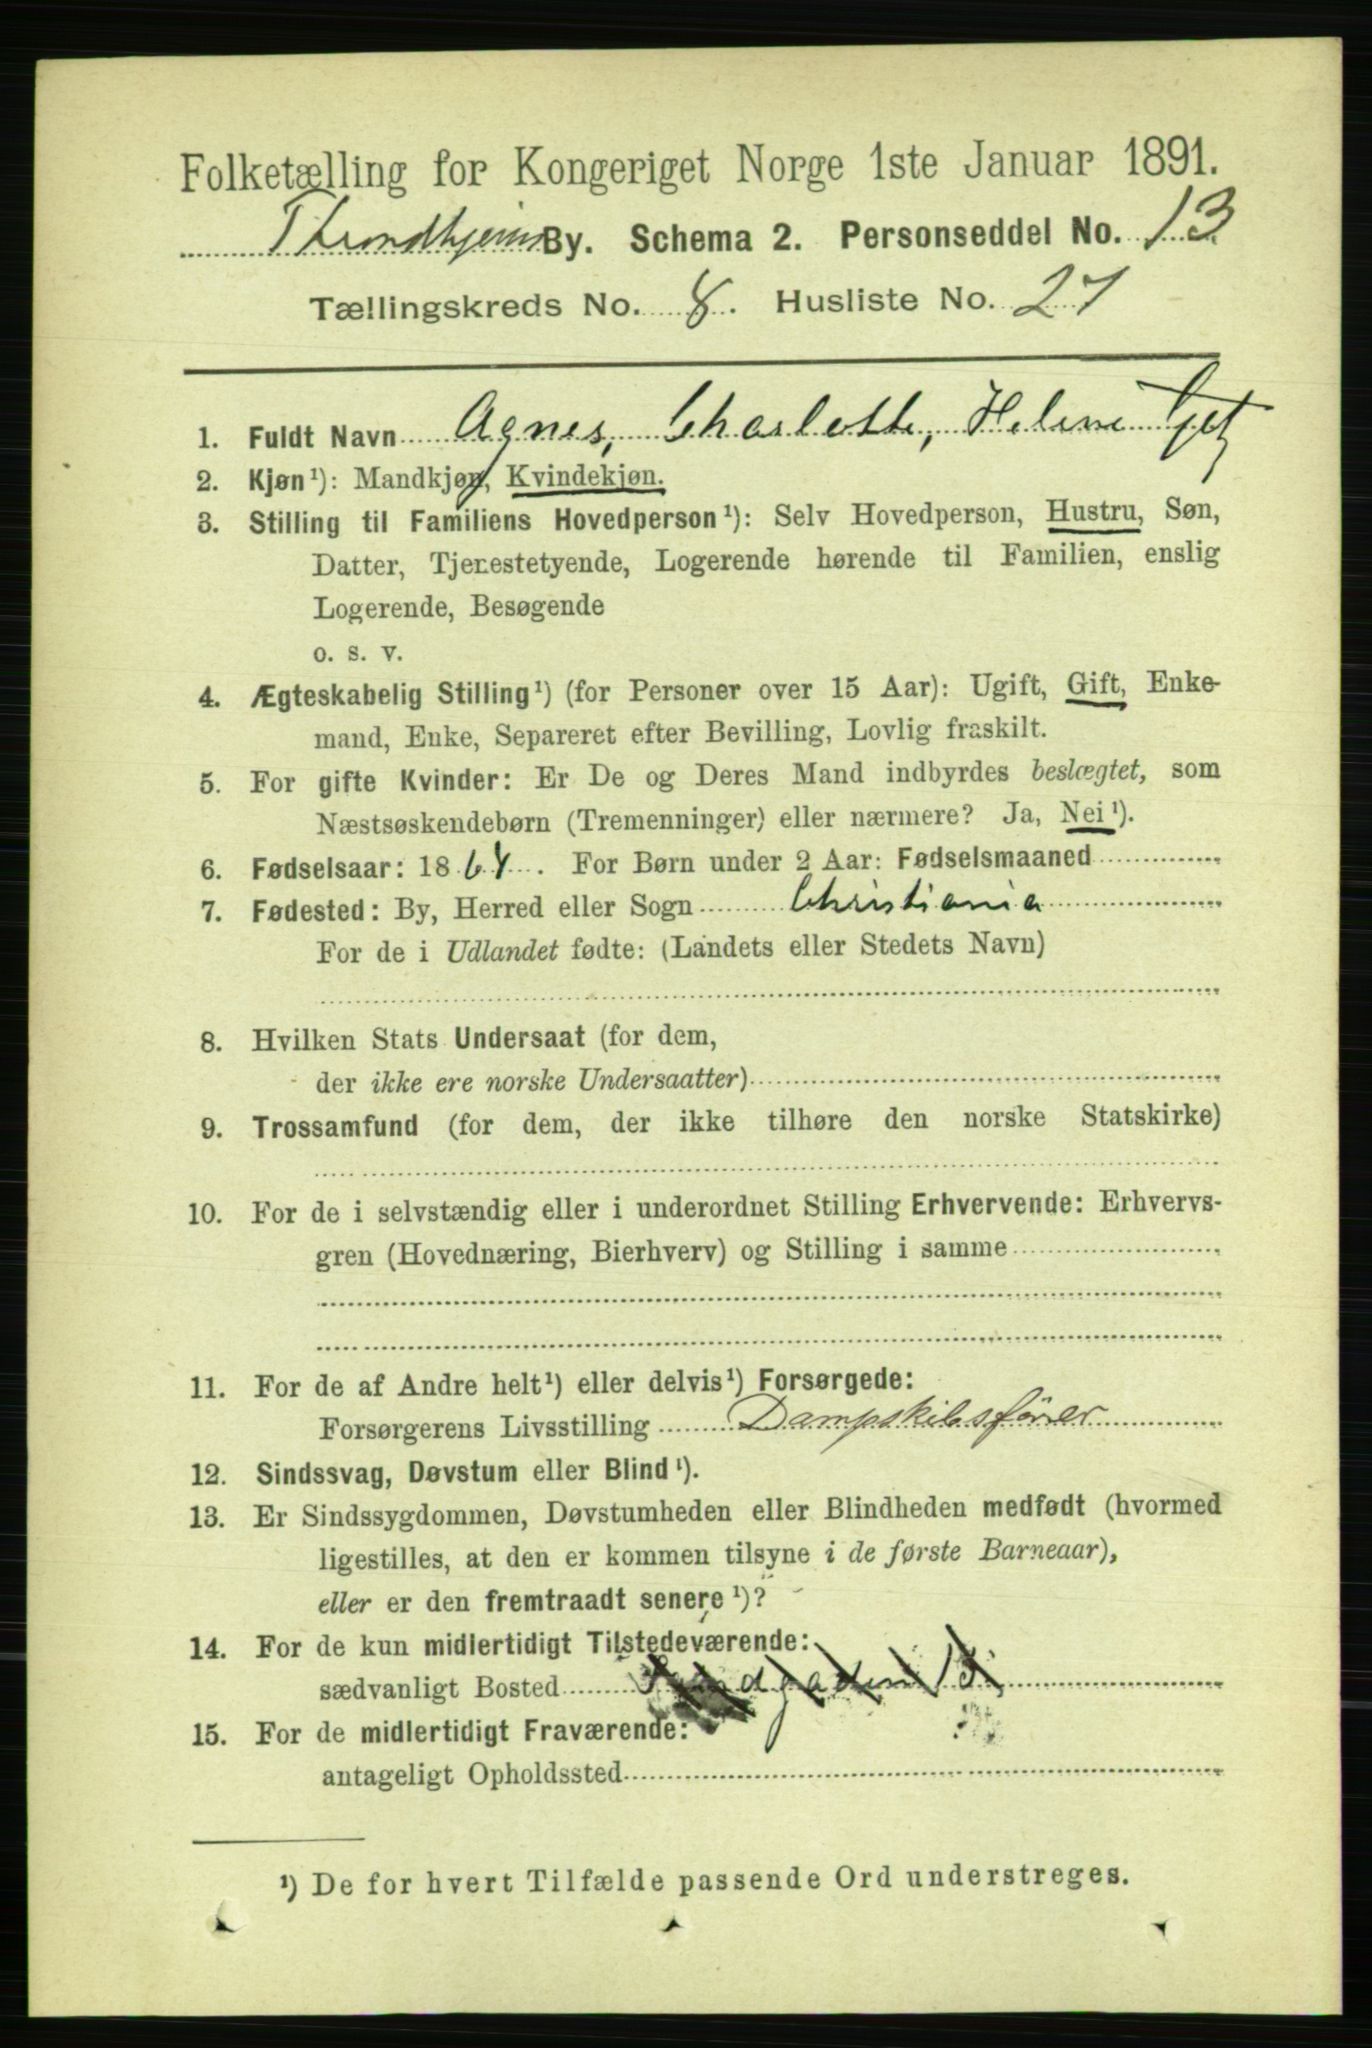 Folketælling for Kongeriget Norge 1ste Januar 1891.
Throndhjems By. Schema 2. Personseddel No. 13.
Tællingskreds No. 8. Husliste No. 27
1. Fuldt Navn Agnes, Charlotte, Helene
2. Kjøn¹): Mandkjøn, Kvindekjøn.
3. Stilling til Familiens Hovedperson¹): Selv Hovedperson, Hustru, Søn,
Datter, Tjenestetyende, Logerende hørende til Familien, enslig
Logerende, Besøgende
o. s. v.
4. Ægteskabelig Stilling¹) (for Personer over 15 Aar): Ugift, Gift, Enke-
mand, Enke, Separeret efter Bevilling, Lovlig fraskilt.
5. For gifte Kvinder: Er De og Deres Mand indbyrdes beslægtet, som
Næstsøskendebørn (Tremenninger) eller nærmere? Ja, Nei¹).
6. Fødselsaar: 1864. For Børn under 2 Aar: Fødselsmaaned
7. Fødested: By, Herred eller Sogn Christiania
For de i Udlandet fødte: (Landets eller Stedets Navn)
8. Hvilken Stats Undersaat (for dem,
der ikke ere norske Undersaatter)
9. Trossamfund (for dem, der ikke tilhøre den norske Statskirke)
10. For de i selvstændig eller i underordnet Stilling Erhvervende: Erhvervs-
gren (Hovednæring, Bierhverv) og Stilling i samme
11. For de af Andre helt¹) eller delvis¹) Forsørgede:
Forsørgerens Livsstilling Dampskibsfører
12. Sindssvag, Døvstum eller Blind¹).
13. Er Sindssygdommen, Døvstumheden eller Blindheden medfødt (hvormed
ligestilles, at den er kommen tilsyne i de første Barneaar),
eller er den fremtraadt senere¹)?
14. For de kun midlertidigt Tilstedeværende:
sædvanligt Bosted
15. For de midlertidigt Fraværende:
antageligt Opholdssted
¹) De for hvert Tilfælde passende Ord understreges.